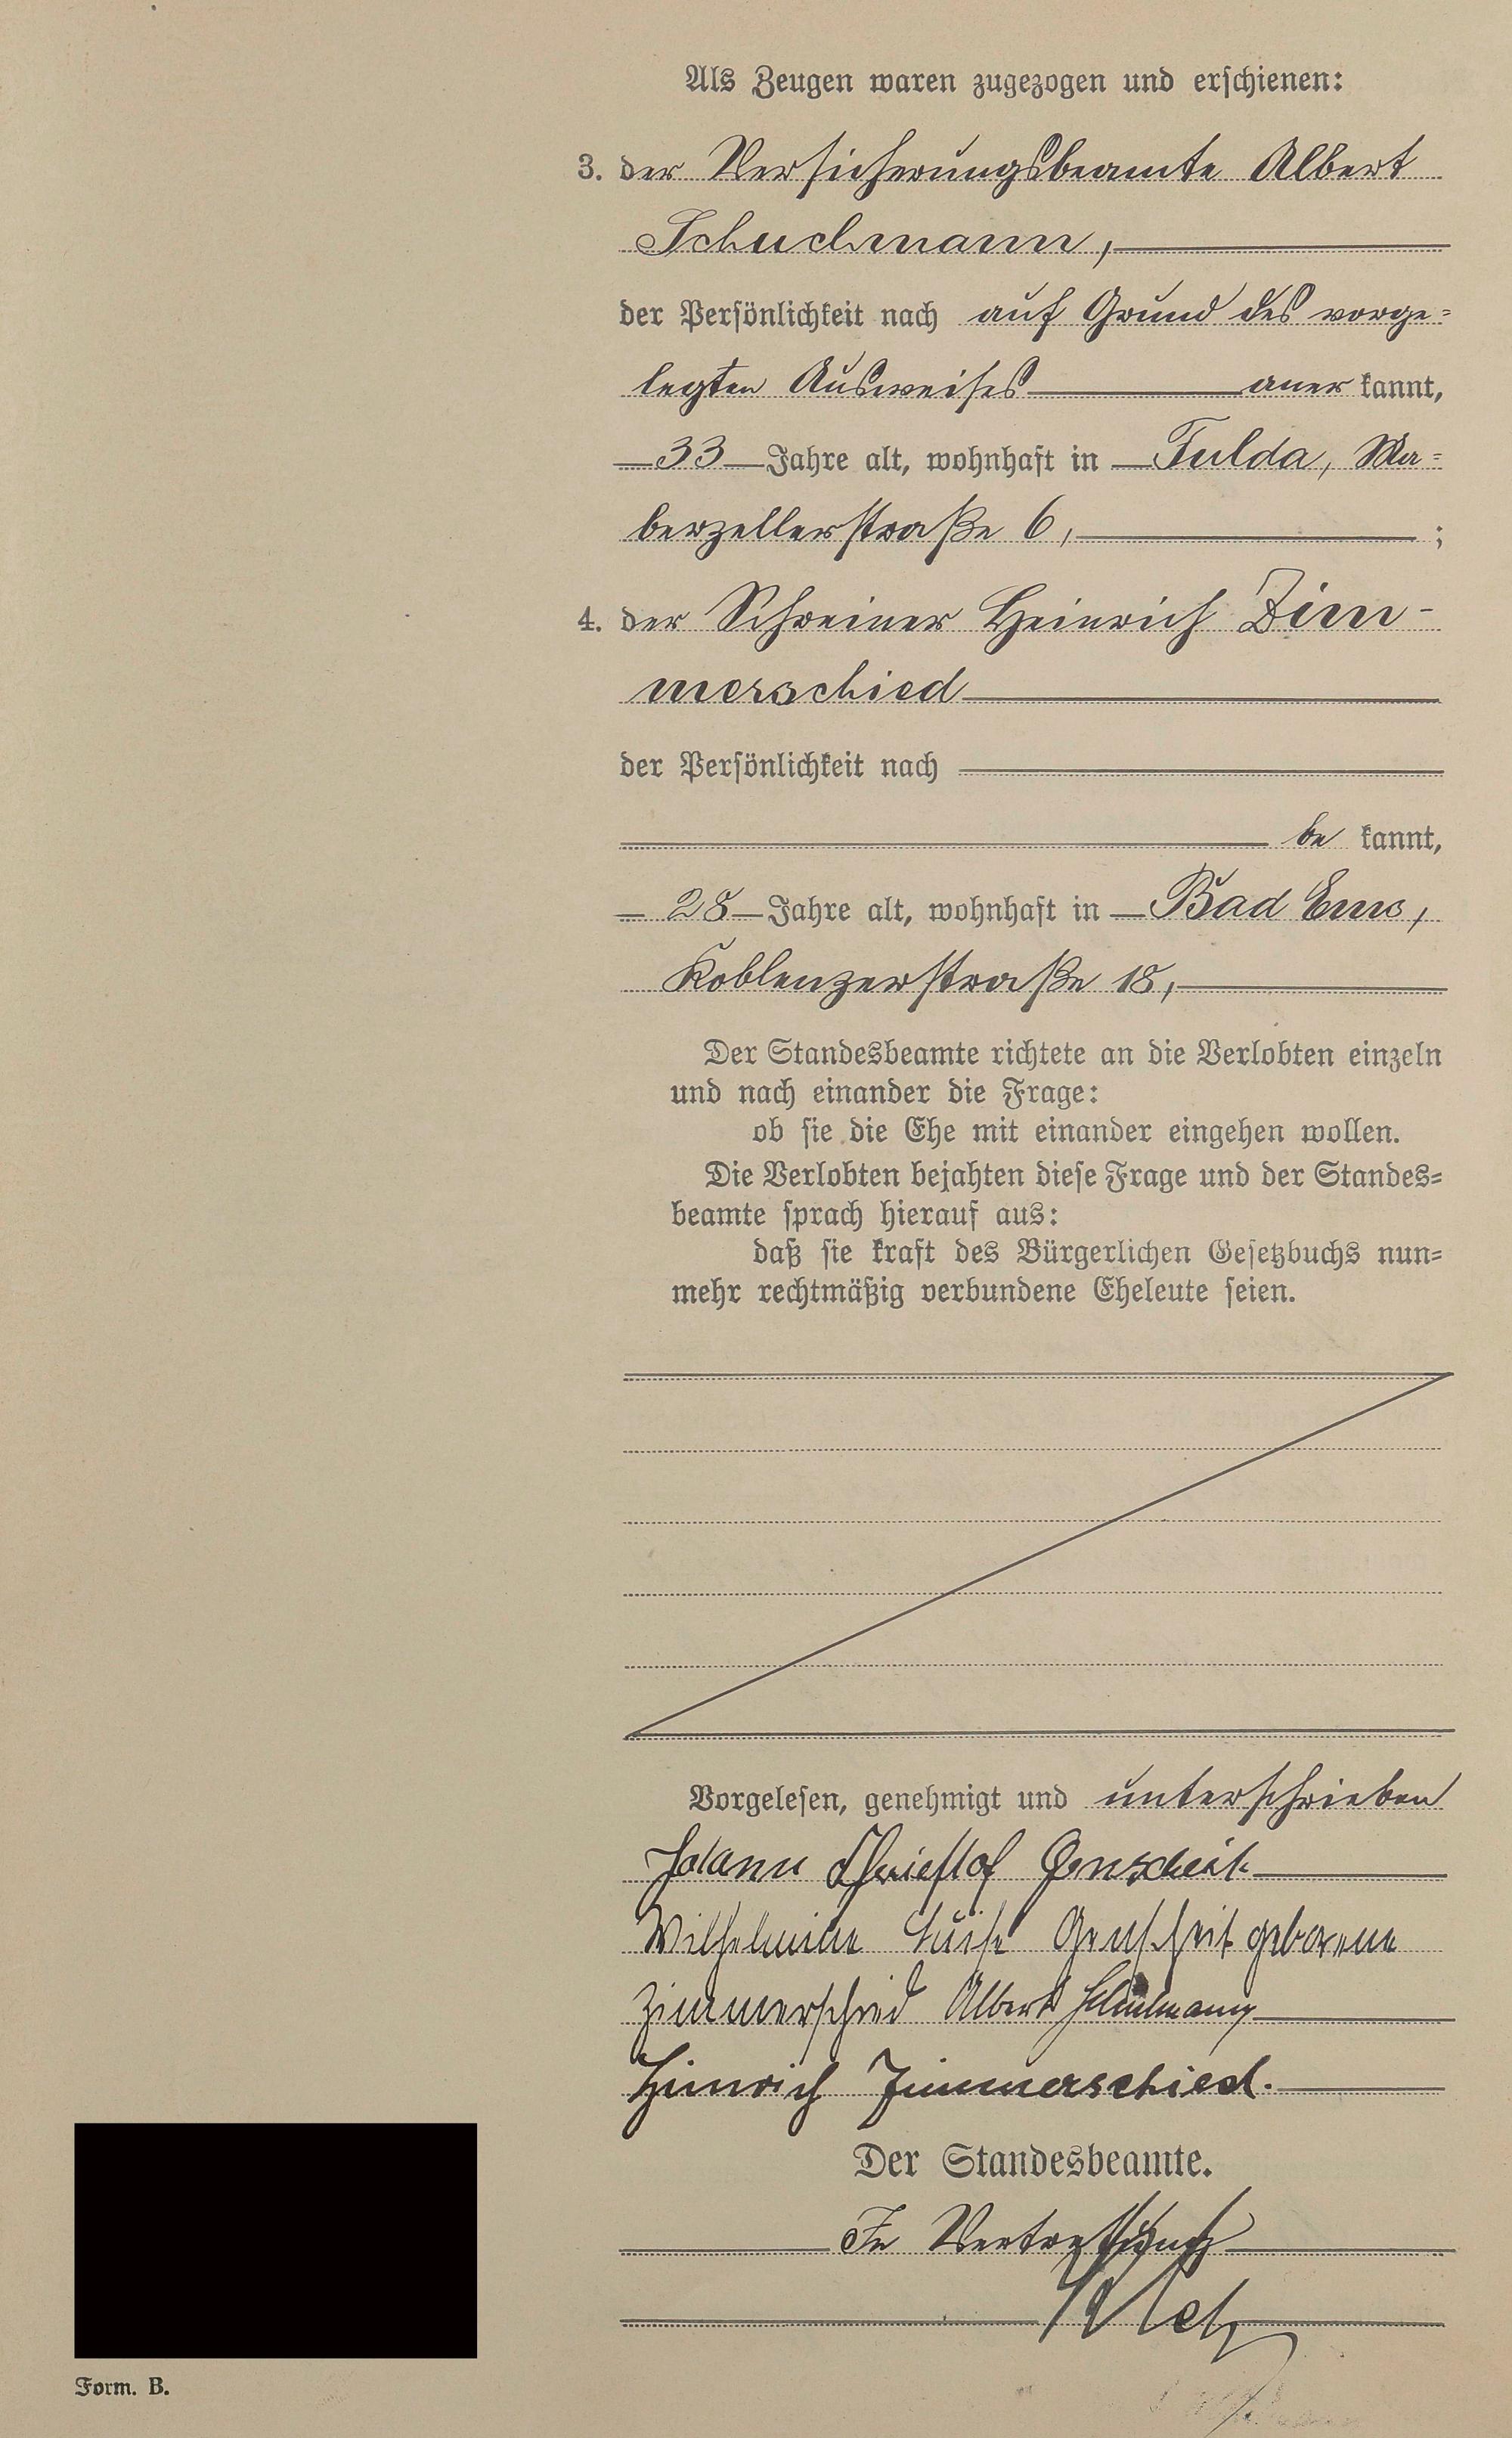 Als Zeugen waren zugezogen und erschienen:
3. der Versicherungsbeamte Albert
Schuchmann,
der Persönlichkeit nach auf Grund des vorge=
legten Ausweises aner kannt,
33 Jahre alt, wohnhaft in Fulda, Ma=
berzellerstraße 6, ;
4. der Schreiner Heinrich Zim-
merschied
der Persönlichkeit nach
be kannt,
28 Jahre alt, wohnhaft in Bad Ems,
Koblenzerstraße 18,
Der Standesbeamte richtete an die Verlobten einzeln
und nach einander die Frage:
ob sie die Ehe mit einander eingehen wollen.
Die Verlobten bejahten diese Frage und der Standes=
beamte sprach hierauf aus:
daß sie kraft des Bürgerlichen Gesetzbuchs nun=
mehr rechtmäßig verbundene Eheleute seien.
Vorgelesen, genehmigt und unterschrieben
Johann Christof Genscheit
Wilhelmine Luise Genscheit geborene
Zimmerschied Albert Schuchmann
Heinrich Zimmerschied.
Der Standesbeamte.
In Vertretung
Form. B.